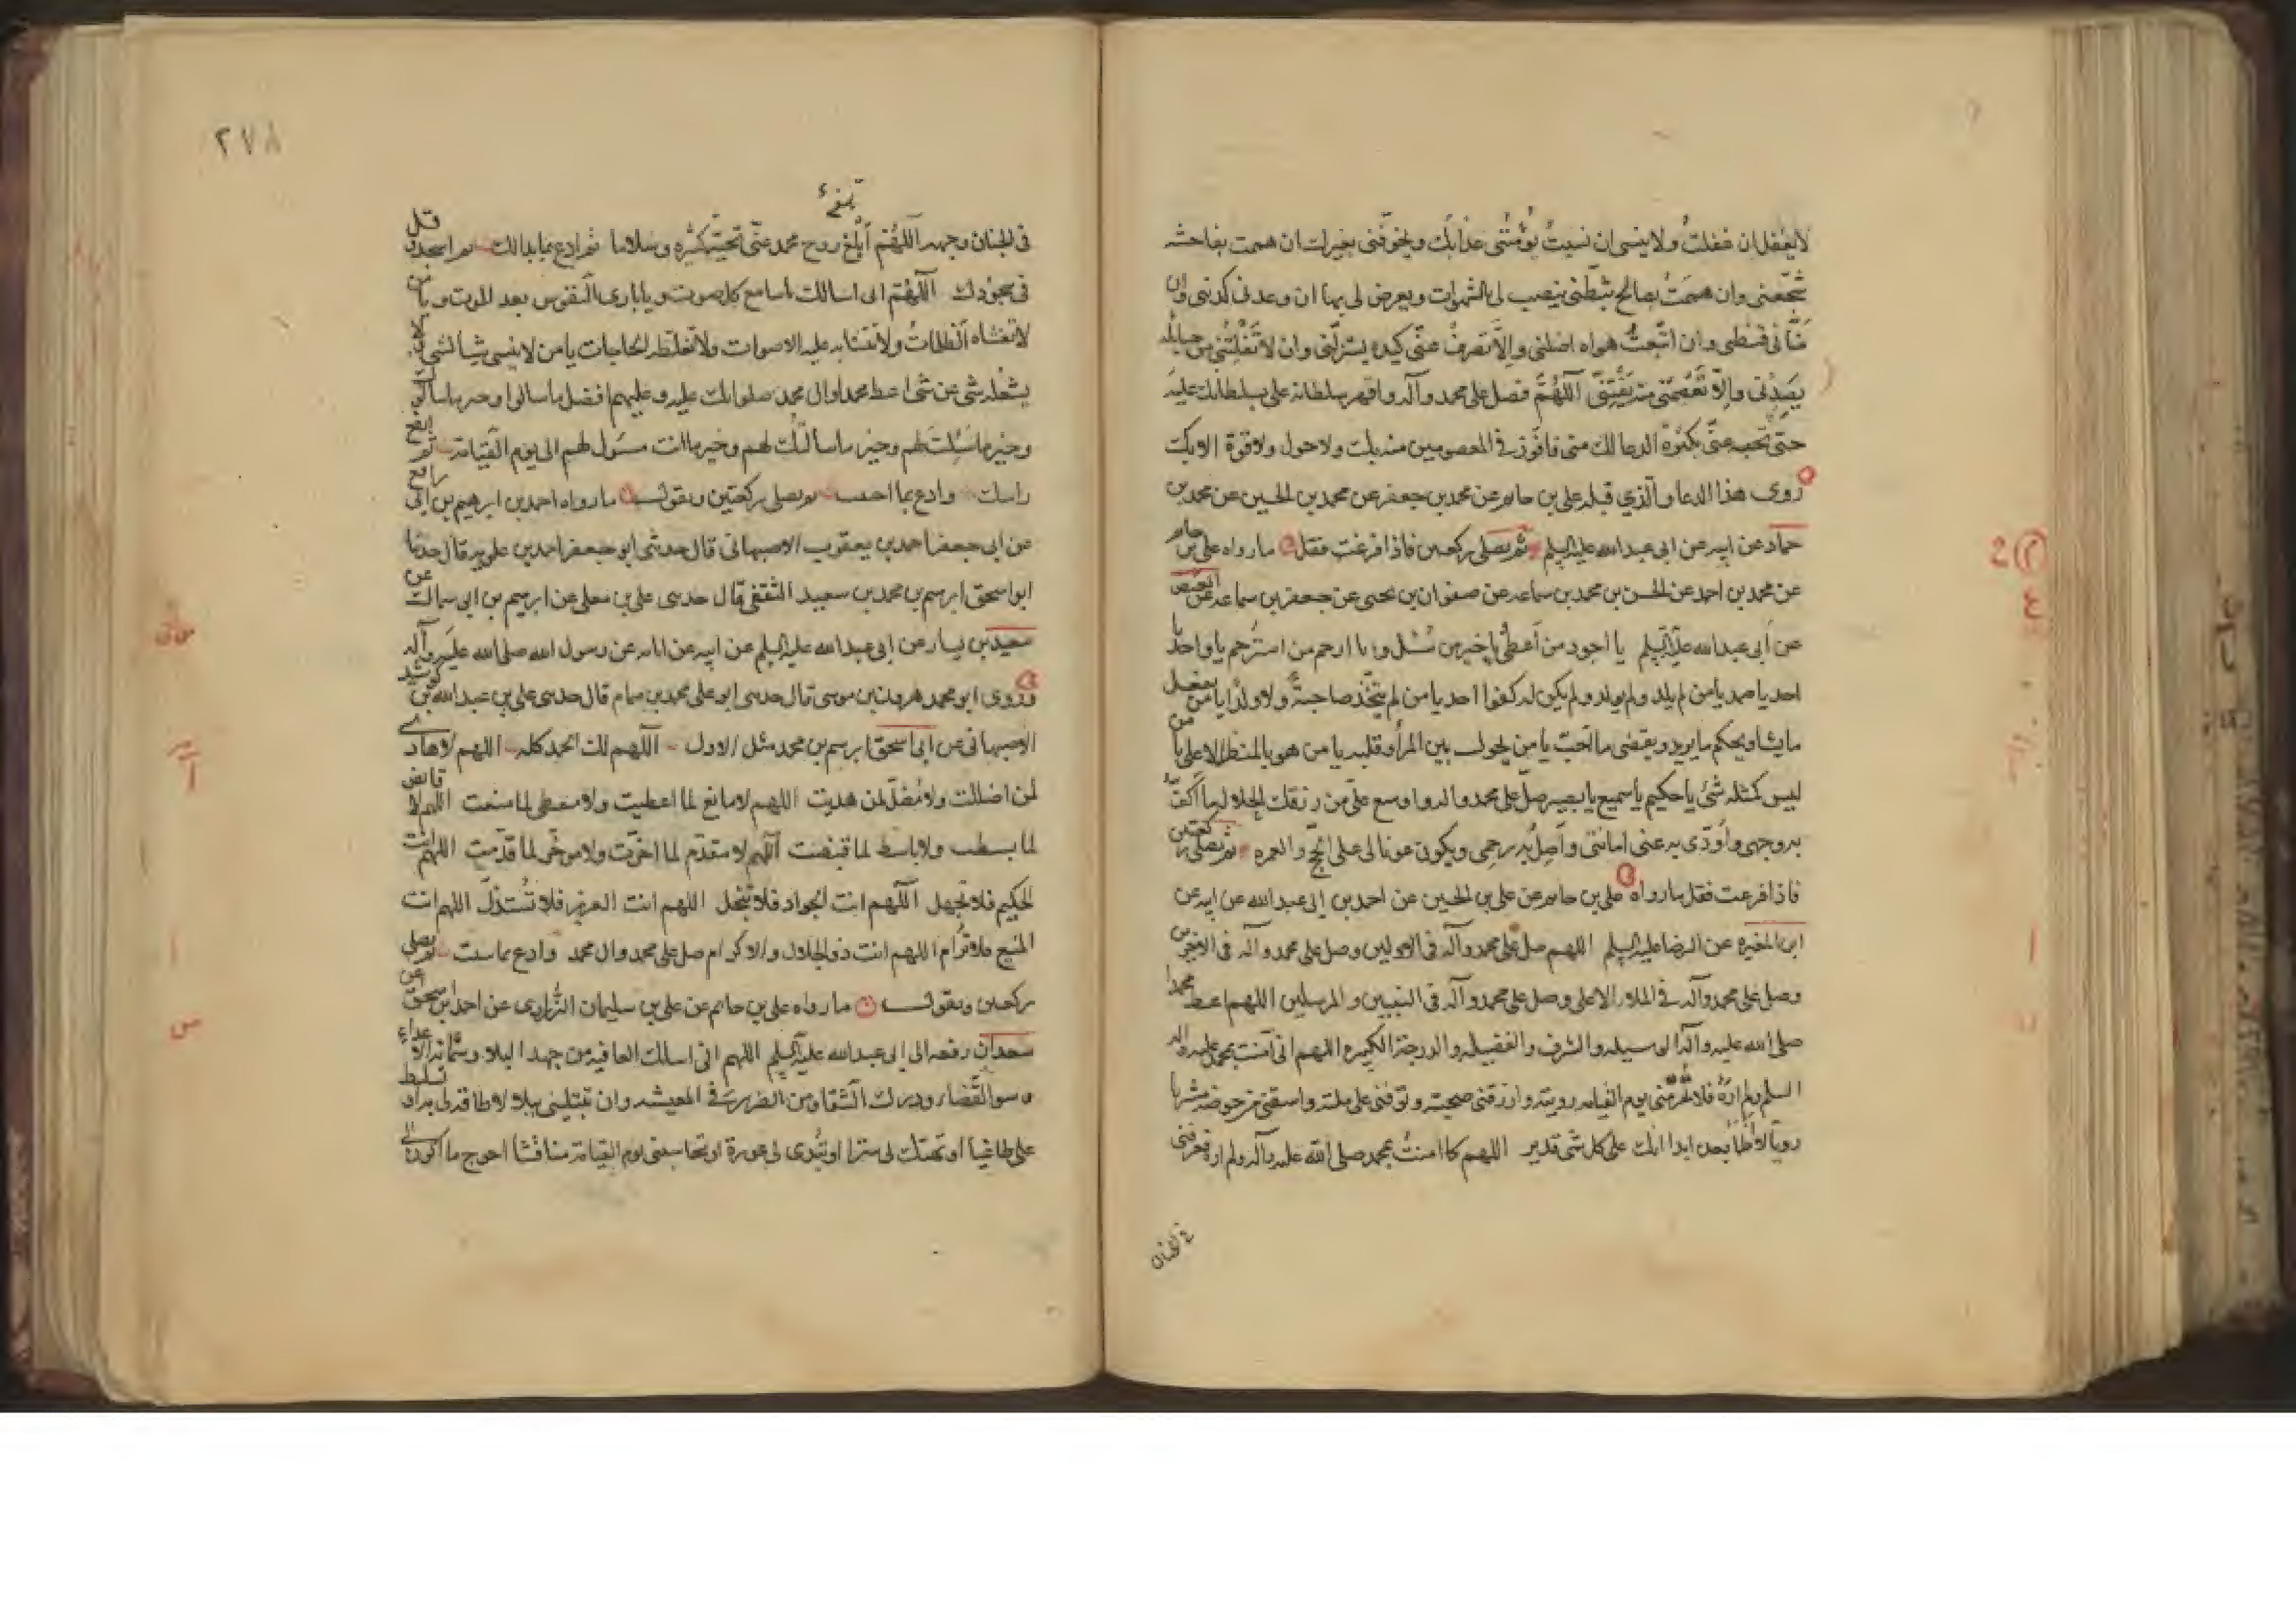 لا يغفل ان غفلتُ ولا ينسى ان نسيتُ يؤمننى عذابك ويخوفنى بغيرك ان هممت بفاحشه
شجعنى وان هممتُ بصالح ثبطنى ينصب لى بالشهوات ويعرض لى بها ان وعدنى كذبنى وان
منّانى قنطنى وان اتبعتُ هواه اضلنى والا تصرف عنى كيده يستزلنى وان لا تفلتنى من حبائله
يصدنى والا تعصمنى منه يفتنى اللهم فصل على محمد وآله واقهر سلطانه على بسلطانك عليه
حتى تحبسه عنى بكثرة الدعا لك منى فافوز فى المعصومين منه بك ولا حول ولا قوة الا بك
روى هذا الدعا والذي قبله على بن حاتم عن محمد بن جعفر عن محمد بن الحسين عن محمد بن
حماد عن ابيه عن ابى عبد الله عليه السلم ثم تصلى ركعتين فاذا فرغت فقل ما رواه على بن حاتم
عن محمد بن احمد عن الحسن بن محمد بن سماعه عن صفوان بن يحيى عن جعفر بن سماعه عن العيص
عن أبى عبد الله عليه السلم يا اجود من أعطى يا خير من سُئل ويا ارحم من استُرحم يا واحد يا
احد يا صمد يا من لم يلد ولم يولد ولم يكن له كفوا احد يا من لم يتخذ صاحبة ولا ولدا يا من يفعل
ما يشا ويحكم ما يريد ويقضى ما احب يا من يحول بين المرأ وقلبه يا من هو بالمنظر الاعلى يا من
ليس كمثله شئ يا حكيم يا سميع يا بصير صل على محمد واله واوسع علىّ من رزقك الحلال ما اكف
به وجهى واؤدى به عنى امانتى واصل به رحمى ويكون عونا لى على الحج والعمره ثم تصلى ركعتين
فاذا فرغت فقل ما رواه على بن حاتم عن على بن الحسين عن احمد بن ابى عبد الله عن ابيه عن
ابن المغيره عن الرضا عليه السلم اللهم صل على محمد وآله فى الاولين وصل على محمد وآله فى الاخرين
وصل على محمد وآله فى الملاء الاعلى وصل على محمد وآله فى النبيين والمرسلين اللهم اعط محمدا
صلى الله عليه وآله الوسيله والشرف والفضيله والدرجة الكبيره اللهم انى آمنت بمحمد عليه واله
السلم ولم اره فلا تحرمنى يوم القيامه رويته وارزقنى صحبته وتوفنى على ملته واسقنى من حوضه مشربا
رويا لا اظما بعده ابدا انك على كل شئ قدير اللهم كما امنتُ بمحمد صلى الله عليه وآله ولم اره فعرفنى
فى الجنان
٢٧٨
فى الجنان وجهه اللهم أبلغ روح محمد عنّى تحية كثيرة وسلاما ثم ادع بما بدا لك ثم اسجد وقل
فى سجودك اللهم انى اسالك يا سامع كل صوت ويا بارى النفوس بعد الموت ويا من
لا تغشاه الظلمات ولا تتشابه عليه الاصوات ولا تغلطه الحاجات يا من لا ينسى شيا لشى ولا
يشغله شى عن شى اعط محمدا وال محمد صلواتك عليه وعليهم افضل ما سالوا وخير ما سالوك
وخير ما سُئلت لهم وخير ما سألتك لهم وخير ما انت مسئول لهم الى يوم القيامة ثم ارفع
راسك وادع بما احببت ثم تصلى ركعتين وتقول ما رواه احمد بن ابرهيم بن ابى رافع
عن ابى جعفر احمد بن يعقوب الاصبهانى قال حدثنى ابو جعفر احمد بن علويه قال حدثنا
ابو اسحق ابرهيم بن محمد بن سعيد الثقفى قال حدثنى على بن معلى عن ابرهيم بن ابى سماك عن
سعيد بن يسار عن ابى عبد الله عليه السلم عن ابيه عن ابائه عن رسول الله صلى الله عليه وآله
وروى ابو محمد هرون بن موسى قال حدثنى ابو على محمد بن همام قال حدثنى على بن عبد الله بن كوشيد
الاصبهانى عن ابى اسحق ابرهيم بن محمد مثل الاول اللهم لك الحمد كله اللهم لا هادى
لمن اضللت ولا مُضل لمن هديت اللهم لا مانع لما اعطيت ولا معطى لما منعت اللهم لا قابض
لما بسطت ولا باسط لما قبضت اللهم لا مقدم لما اخرت ولا موخر لما قدّمت اللهم انت
الحكيم فلا تجهل اللهم انت الجواد فلا تبخل اللهم انت العزيز فلا تُستذلّ اللهم انت
المنيع فلا تُرام اللهم انت ذو الجلال والاكرام صل على محمد وال محمد وادع بما شئت ثم تصلى
ركعتين وتقول ما رواه على بن حاتم عن على بن سليمان الزرارى عن احمد بن اسحق عن
سعدان رفعه الى ابى عبد الله عليه السلم اللهم انى اسالك العافيه من جهد البلاء وشماتة الاعداء
وسوء القضاء ودرك الشقاء ومن الضرر فى المعيشه وان تبتلينى ببلاء لا طاقة لى به او تسلط
على طاغيا او تهتك لى سترا او تبدى لى عورة او تحاسبنى يوم القيامة مناقشا احوج ما اكون الى